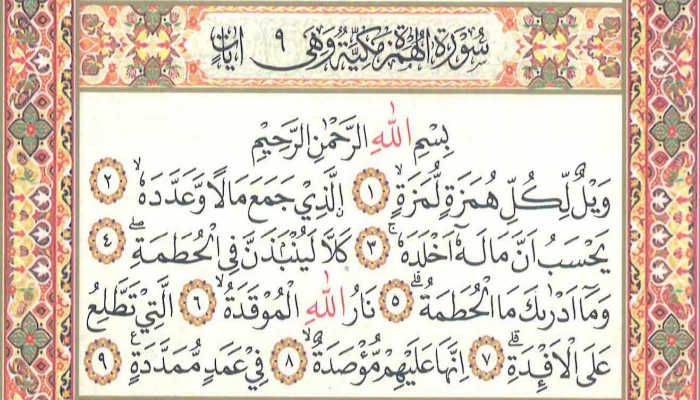 سُورَةُ الْهُمَزَةِ مَكِّيَّةٌ وَهِيَ ٩ اٰيَاتٍ
بِسْمِ اللّٰهِ الرَّحْمٰنِ الرَّحِيمِ
وَيْلٌ لِّكُلِّ هُمَزَةٍ لُّمَزَةٍۙ ﴿١﴾ اِلَّذِي جَمَعَ مَالًا وَّعَدَّدَهُۙ ﴿٢﴾
يَحْسَبُ اَنَّ مَالَهُٓ اَخْلَدَهُۚ ﴿٣﴾ كَلَّا لَيُنْبَذَنَّ فِي الْحُطَمَةِۖ ﴿٤﴾
وَمَٓا اَدْرٰيكَ مَا الْحُطَمَةُۗ ﴿٥﴾ نَارُ اللّٰهِ الْمُوقَدَةُۙ ﴿٦﴾ الَّتِي تَطَّلِعُ
عَلَى الْاَفْـِٔدَةِۗ ﴿٧﴾ اِنَّهَا عَلَيْهِمْ مُّؤْصَدَةٌۙ ﴿٨﴾ فِي عَمَدٍ مُّمَدَّدَةٍ ﴿٩﴾